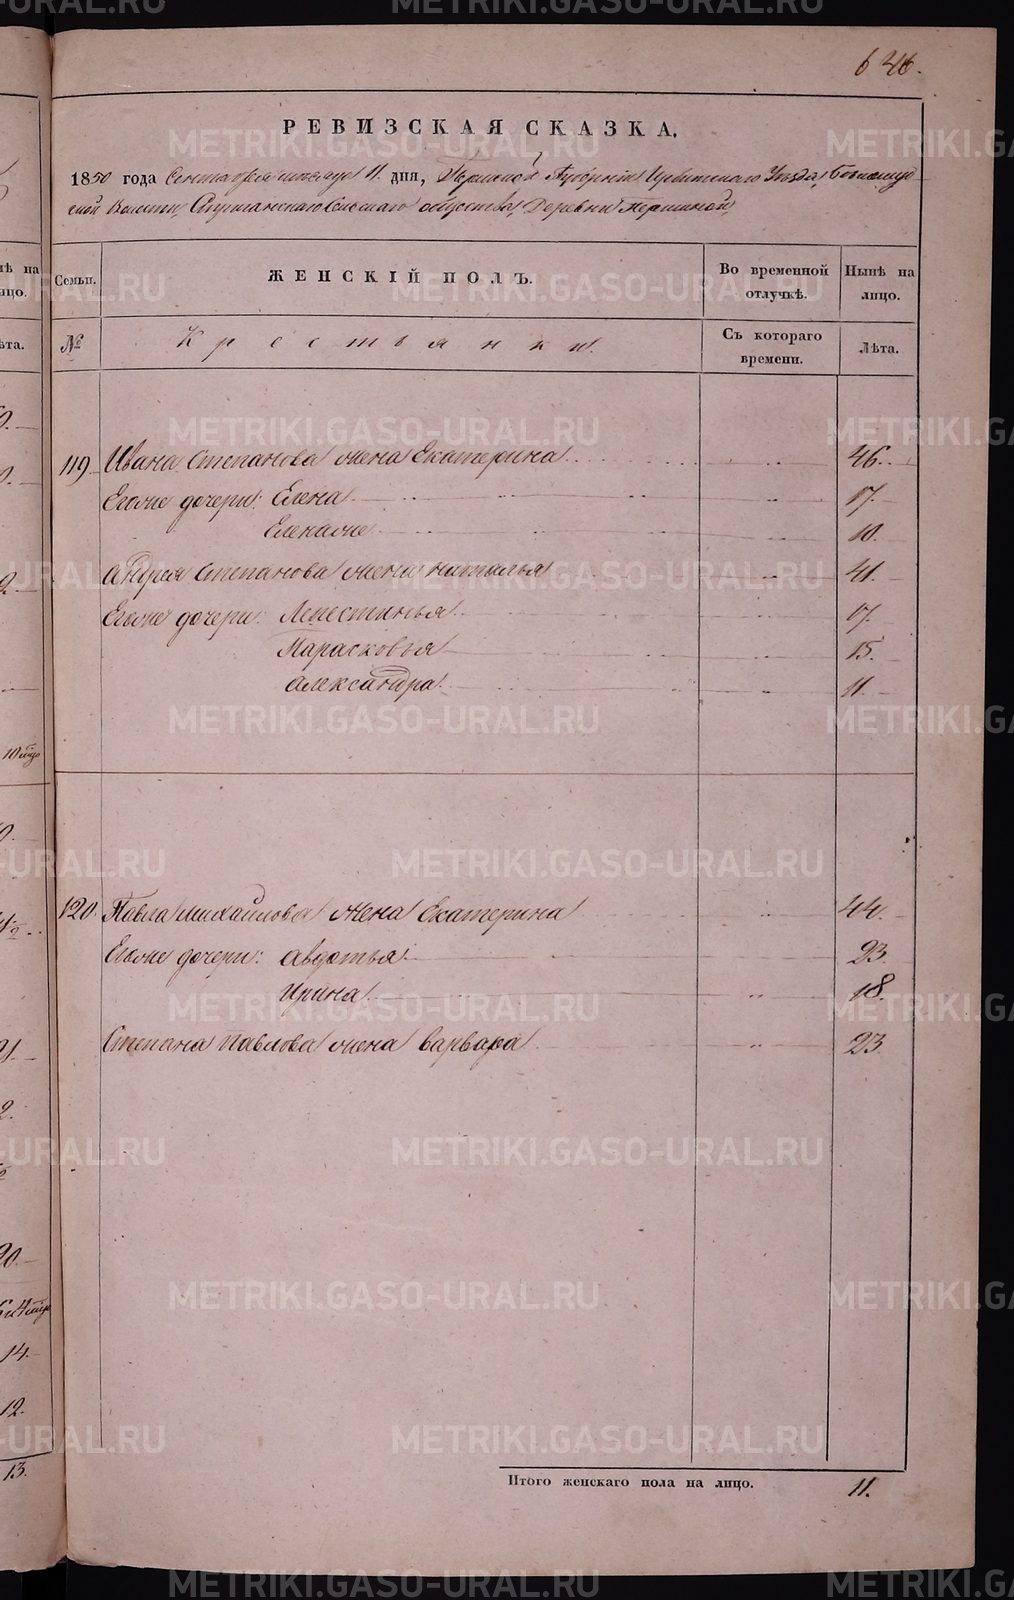 646.
РЕВИЗСКАЯ СКАЗКА.
1850 года Сентября месяца 11. дня, Пермской Губернии Ирбитскаго Уезда,
ской Волости, Сельскаго общества, Деревни Першиной,
Семьи. ЖЕНСКІЙ ПОЛЪ. Во временной отлучкѣ. Нынѣ на лицо.
№ Крестьянки. Съ котораго времени. Лѣта.
119 Ивана Степанова жена Екатерина 46.
Егоже дочери: Елена 17.
Еленаже 10.
Андрея Степанова жена Наталья 41.
Егоже дочери: Лепестинья 17.
Парасковья 15.
Александра 11.
10 мцо
120. Павла Михайлова жена Екатерина 44.
Егоже дочери: Авдотья 23.
Ирина 18.
Степана Павлова жена Варвара 23
20.
14.
12.
13.
Итого женскаго пола на лицо. 11.
METRIKI.GASO-URAL.RU